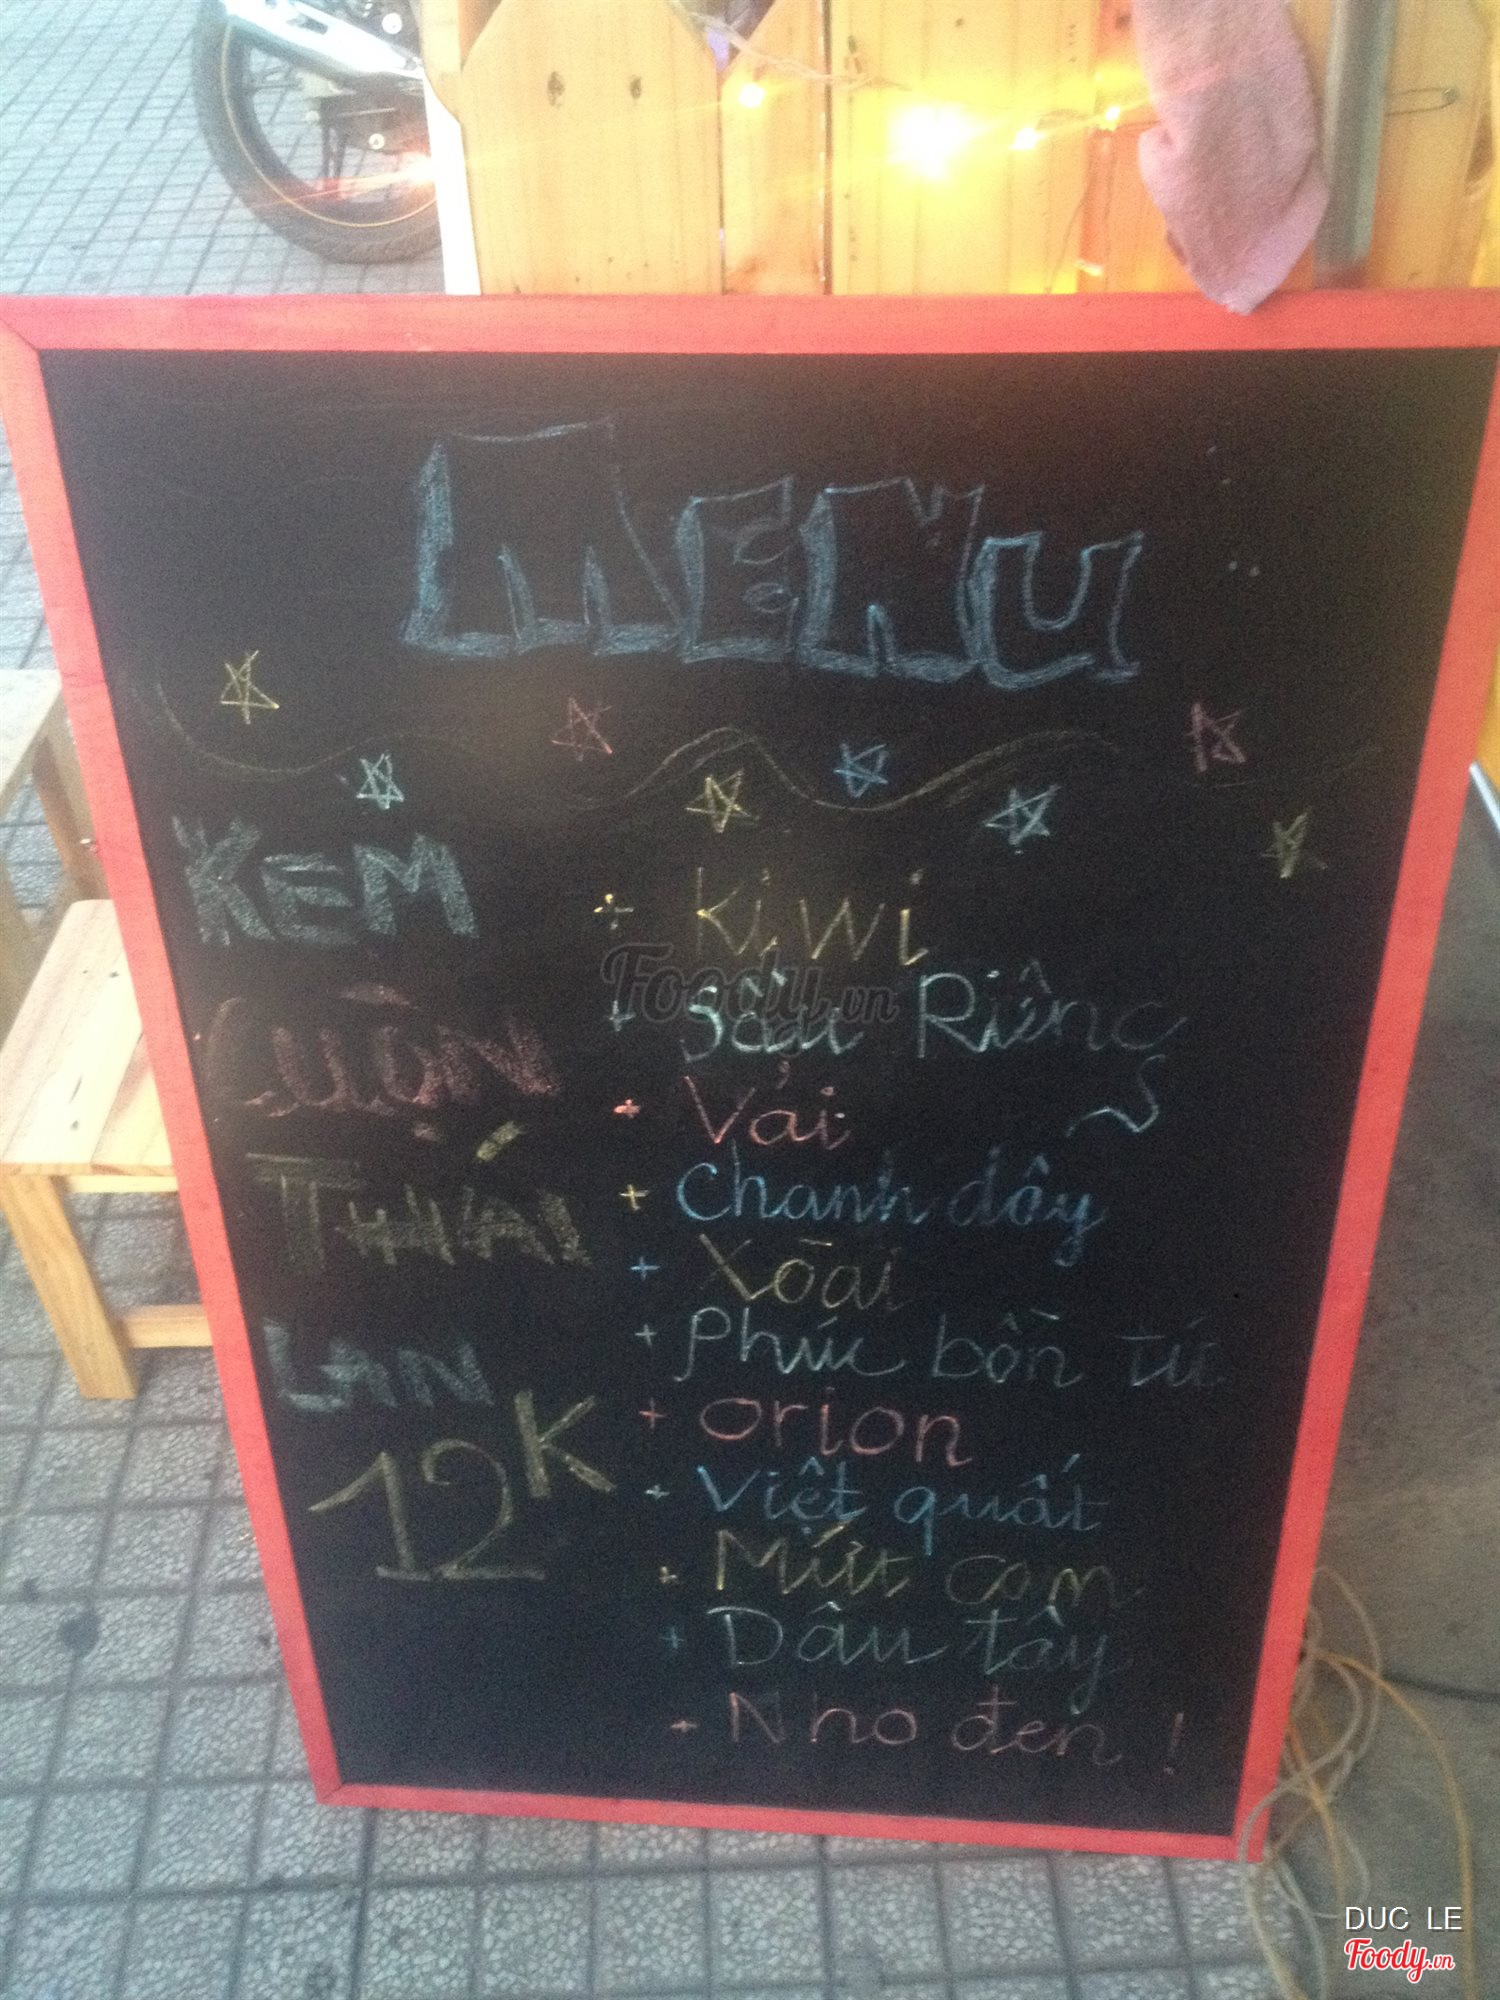 Menu
KEM
CUỘN
THÁI
LAN
12K
+ Kiwi
+ Sầu Riêng
+ Vải
+ Chanh dây
+ Xoài
+ Phúc bồn tú
+ orion
+ Việt quất
+ Mứt cam
+ Dâu tây
+ Nho đen !
Foody.vn
DUC LE
Foody.vn